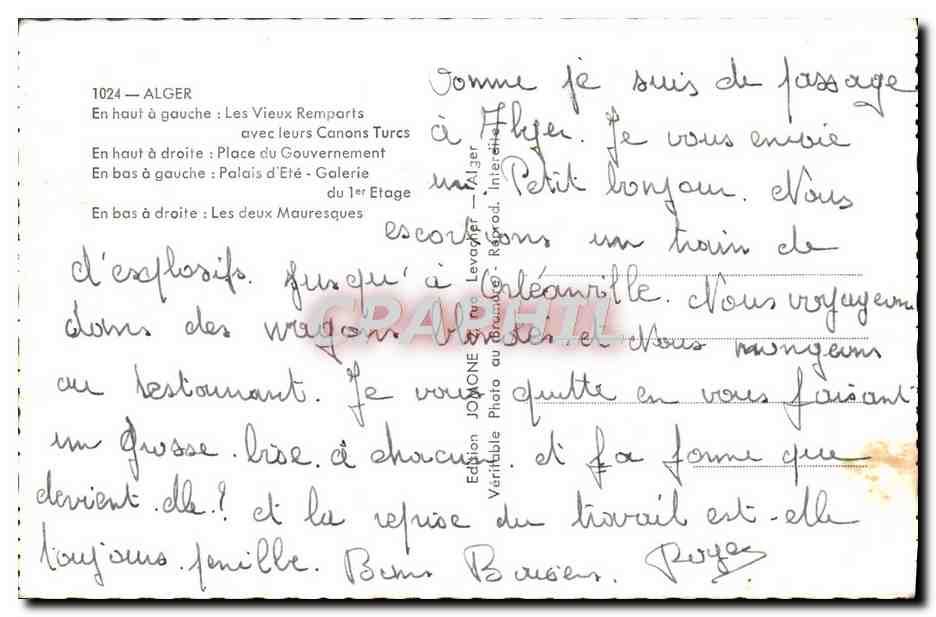 1024 — ALGER
En haut à gauche : Les Vieux Remparts
avec leurs Canons Turcs
En haut à droite : Place du Gouvernement
En bas à gauche : Palais d'Eté - Galerie
du 1er Etage
En bas à droite : Les deux Mauresques
Edition JOMONE rue Levacher — Alger
Véritable Photo au Bromure - Reprod. Interdite
Comme je suis de passage
à Alger. Je vous envoie
un. Petit bonjour. Nous
escortons un train de
d'explosifs. Jusqu'à Orléanville. Nous voyageons
dans des wagons blindés et Nous mangeons
au restaurant. Je vous quitte en vous faisant
un grosse. bise. à chacun. et
que
devient. elle ? et la reprise du travail est-elle
toujours. penible. Bons Baisers. Roger
CPARPHIL